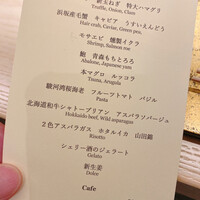 新玉ねぎ 特大ハマグリ
Truffle, Onion, Clam
浜坂産毛蟹 キャビア うすいえんどう
Hair crab, Caviar, Green pea,
モサエビ 燻製イクラ
Shrimp, Salmon roe
鮑 青森もちとろろ
Abalone, Japanese yam
本マグロ ルッコラ
Tuna, Arugula
駿河湾桜海老 フルーツトマト バジル
Pasta
北海道和牛シャトーブリアン アスパラソバージュ
Hokkaido beef, Wild asparagus
2色アスパラガス ホタルイカ 山田錦
Risotto
シェリー酒のジェラート
Gelato
新生姜
Dolce
Cafe